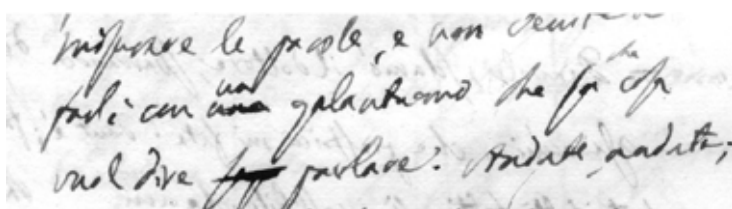 misurare le parole, e non venite a
parli con un galantuomo che sa che cosa
vuol dire parlare. Andate, andate;